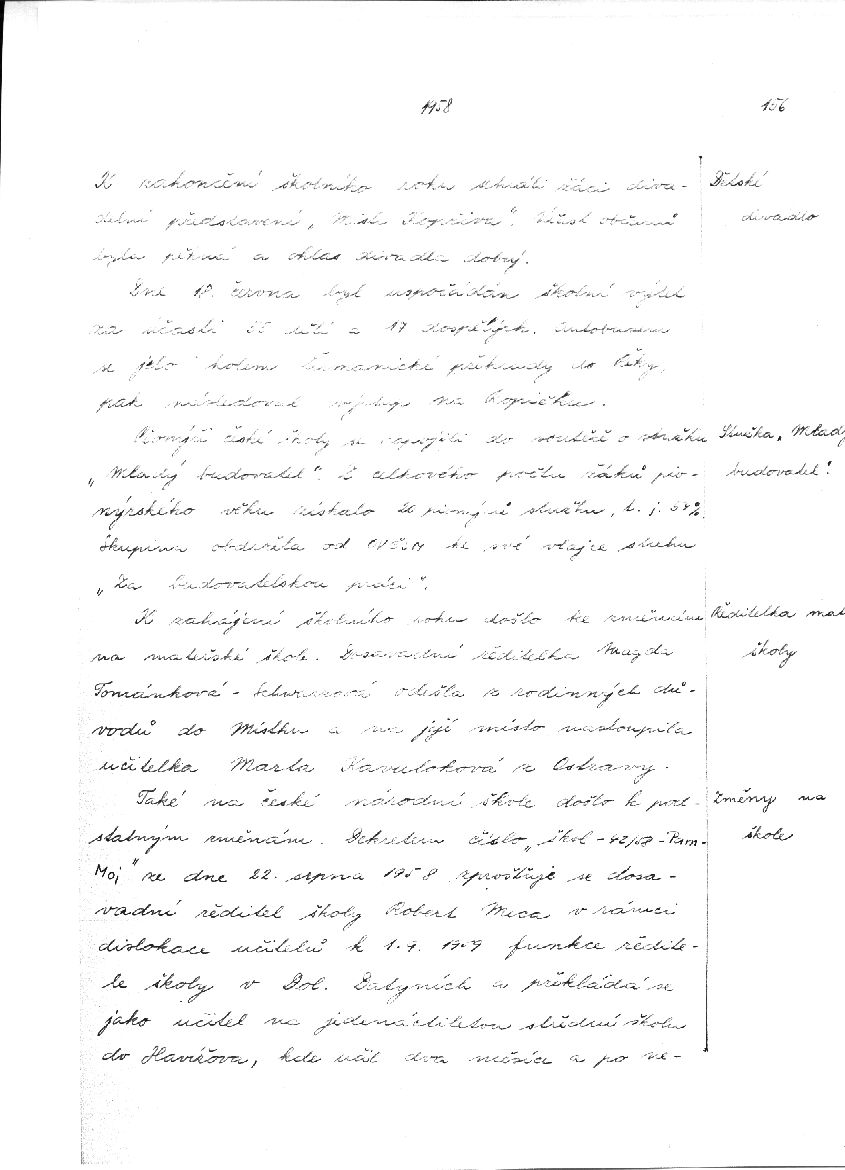 1958
156
K zakončení školního roku sehráli žáci diva-
delní představení „Míšk Kopřiva". Účast občanů
byla pěkná a ohlas divadla dobrý.
Dětské
divadlo
Dne 18. června byl uspořádán školní výlet
za účasti 55 dětí a 17 dospělých. Autobusem
se jelo kolem Žermanické přehrady do Řeky,
pak následoval výstup na Ropičku.
Pionýři české školy se zapojili do soutěže o stužku
„Mladý budovatel". Z celkového počtu žáků pio-
nýrského věku získalo 20 pionýrů stužku, t. j. 54%.
Skupina obdržela od ke své vlajce stuhu
„Za budovatelskou práci".
Stužka „Mladý
budovatel".
K zahájení školního roku došlo ke změnám
na mateřské škole. Dosavadní ředitelka Magda
Tománková - odešla z rodinných dů-
vodů do Místku a na její místo nastoupila
učitelka Marta Kavuloková z Ostravy.
Ředitelka mat
školy
Také na české národní škole došlo k pod-
statným změnám. Dekretem číslo „škol-42/58-Pom-
Moj" ze dne 22. srpna 1958 zprošťuje se dosa-
vadní ředitel školy Robert Meca v rámci
dislokace učitelů k 1.9. funkce ředite-
le školy v Dol. Datyních a překládá se
jako učitel na jedenáctiletou střední školu
do Havířova, kde učil dva měsíce a po ne-
Změny na
škole